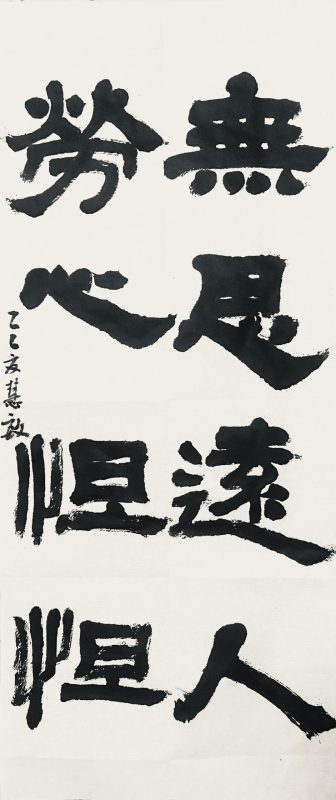 無思遠人
勞心怛怛
乙巳友慧敏